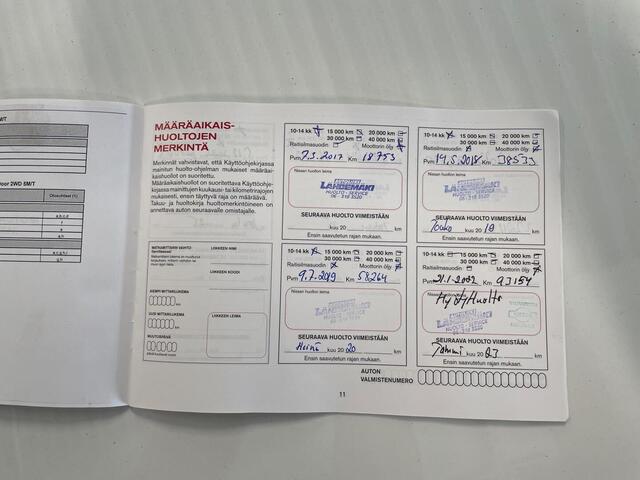 MÄÄRÄAIKAIS-
HUOLTOJEN
MERKINTÄ
Merkinnät vahvistavat, että Käyttöohjekirjassa
mainitun huolto-ohjelman mukaiset määräai-
kaishuollot on suoritettu.
Määräaikaishuollot on suoritettava Käyttöohje-
kirjassa mainittujen kuukausi- tai kilometrirajojen
mukaisesti, ensin täyttyvä raja on määräävä.
Takuu- ja huoltokirja huoltomerkintöineen on
annettava auton seuraavalle omistajalle.
MATKAMITTARIN VAIHTO
LIIKKEEN NIMI
LIIKKEEN KOODI
AIEMPI MITTARILUKEMA
km
UUSI MITTARILUKEMA
km
LIIKKEEN LEIMA
MUUTOSPÄIVÄ
10-14 kk 15 000 km 20 000 km
30 000 km 40 000 km
Raitisilmasuodin Moottorin öljy
Pvm 7.3.2017 Km 18753
Nissan huollon leima
LAHDEMÄKI
HUOLTO - SERVICE
06 - 318 3520
SEURAAVA HUOLTO VIIMEISTÄÄN
kuu 20 km
Ensin saavutetun rajan mukaan.
10-14 kk 15 000 km 20 000 km
30 000 km 40 000 km
Raitisilmasuodin Moottorin öljy
Pvm 14.5.2018 Km 38533
Nissan huollon leima
LAHDEMÄKI
HUOLTO - SERVICE
06 - 318 3520
SEURAAVA HUOLTO VIIMEISTÄÄN
Touko kuu 20 19 km
Ensin saavutetun rajan mukaan.
10-14 kk 15 000 km 20 000 km
30 000 km 40 000 km
Raitisilmasuodin Moottorin öljy
Pvm 9.7.2019 Km 58264
Nissan huollon leima
LAHDEMÄKI
HUOLTO - SERVICE
06 - 318 3520
SEURAAVA HUOLTO VIIMEISTÄÄN
Heinä kuu 20 20 km
Ensin saavutetun rajan mukaan.
10-14 kk 15 000 km 20 000 km
30 000 km 40 000 km
Raitisilmasuodin Moottorin öljy
Pvm 21.1.2022 Km 93154
Nissan huollon leima
SEURAAVA HUOLTO VIIMEISTÄÄN
Tammi kuu 20 23 km
Ensin saavutetun rajan mukaan.
AUTON
VALMISTENUMERO
11